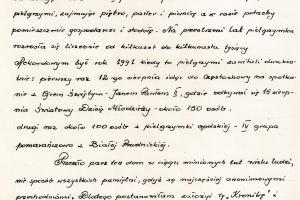 pielgrzymi, zajmując piętro, parter i piwnicę a w razie potrzeby
pomieszczenie gospodarcze i stodołę. Na przestrzeni lat pielgrzymka
rozrosła się liczebnie od kilkuset do kilkunastu tysięcy
Rekordowym był rok 1991 kiedy to pielgrzymi zawitali
pierwszy raz 12-go sierpnia idąc do Częstochowy na spotka-
nie z Ojcem Świętym - Janem Pawłem II, gdzie odbywał się 15 sierp-
nia Światowy Dzień Młodzieży - około 150 osób
drugi raz około 100 osób z pielgrzymki opolskiej - IV grupa
pomarańczowa z Białej Prudnickiej.
Przeszło przez ten dom w ciągu minionych lat wielu ludzi,
nie sposób wszystkich pamiętać, gdyż są najczęściej anonimowymi
przechodniami, Dlatego postanowiłam założyć tę „Kronikę" i